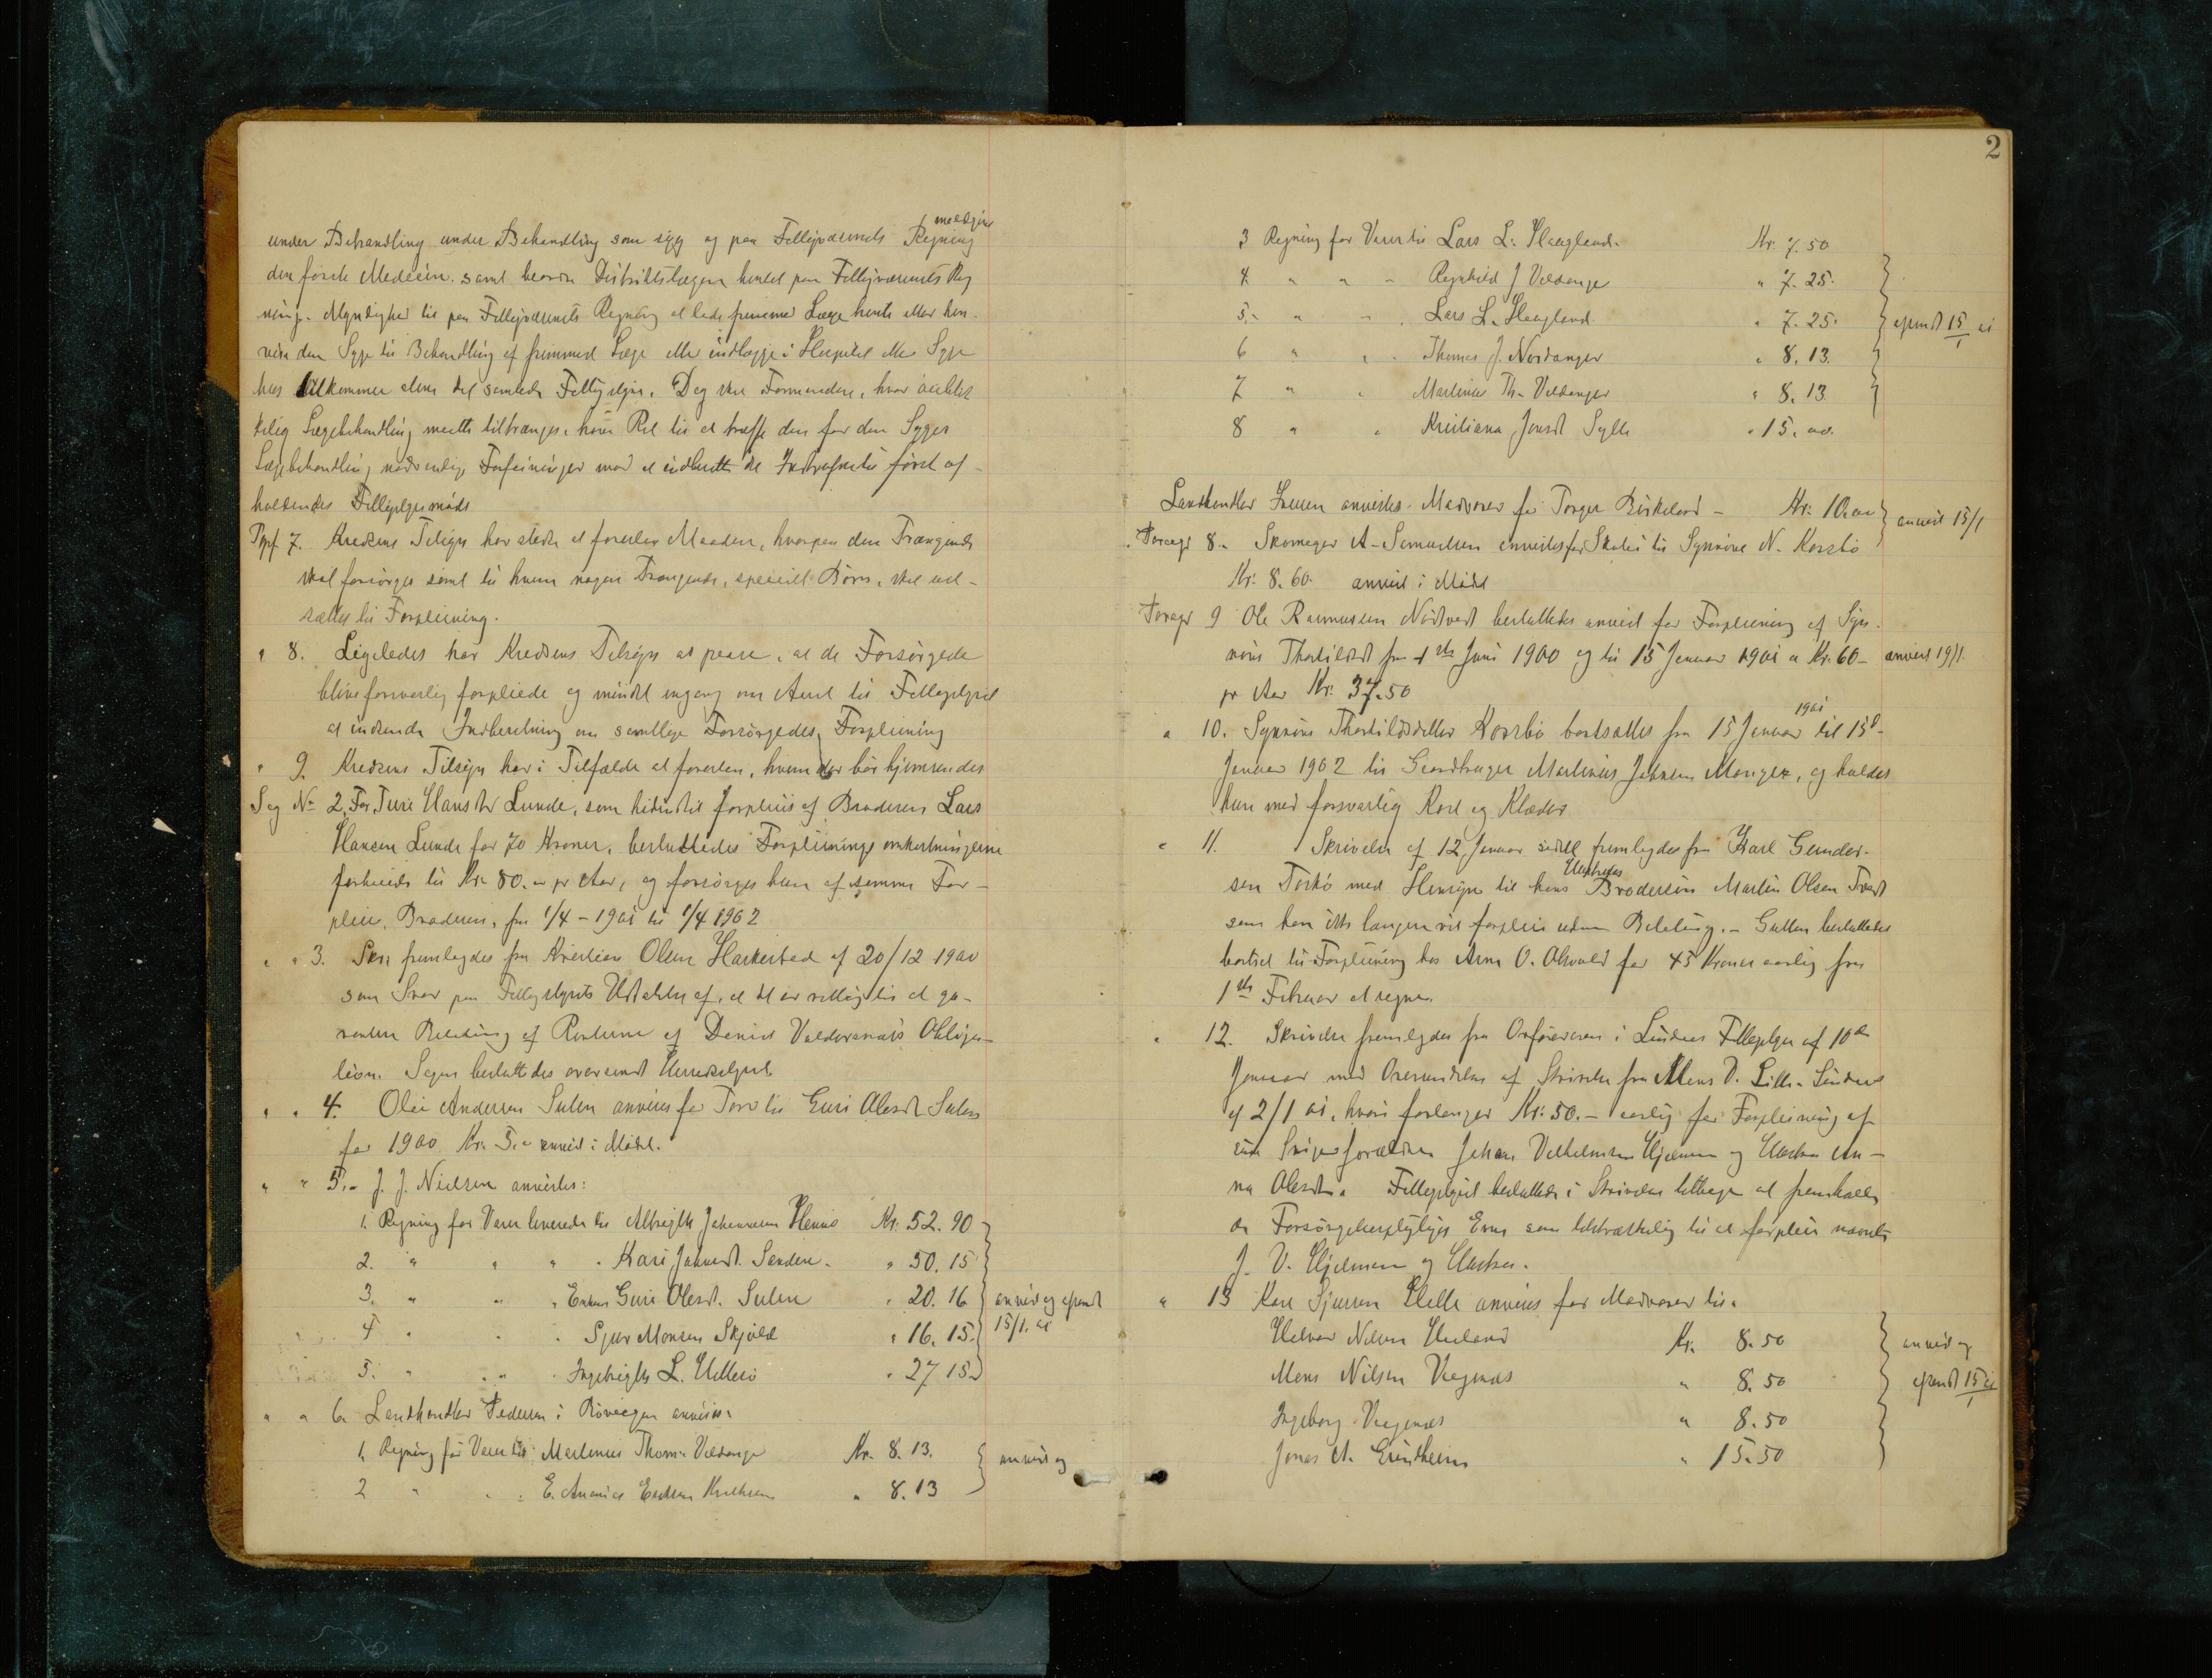 meddele
under Behandling under Behandling som syg og paa Fattigvæsenets Regning
den første Medecin. samt besørge Distriktslægen hentet paa Fattigvæsenets Reg
ning. Myndighed til paa Fattigvæsenets Regning at lade fremmed Læge hente eller hen-
vise den Syge til Behandling af fremmed Læge eller indlægge i Hospital eller Syge
hus tilkommer alene det samlede Fattigstyre. Dog skal Formanden, hvor øieblik
kelig Lægebehandling maatte tiltrænges, have Ret til at træffe den for den Syges
Lægebehandling nødvendige Forføininger mod at indberette det Indtrufne til først af-
holdendes Fattigstyresmøde
Pgrf. 7. Kredsens Tilsyn har stedse at foreslaa Maaden, hvorpaa den Trængende
skal forsørges samt til hvem nogen Trængende, specielt Børn, skal ud-
sættes til Forpleining.
" 8. Ligeledes har Kredsens Tilsyn at paase, at de Forsørgede
blive forsvarlig forpleiede og mindst engang om Aaret til Fattigstyret
at indsende Indberetning om samtlige Forsørgedes Forpleining
" 9. Kredsens Tilsyn har i Tilfælde at foreslaa, hvem der bør hjemsendes
Sag No 2. For Turi Hansdtr Lunde, som hidindtil forpleies af Broderen Lars
Hansen Lunde for 70 Kroner, besluttedes Forpleiningsomkostningerne
forhøiede til Kr. 80.- pr Aar, og forsørges hun af samme For-
pleier, Broderen, fra 1/4 - 1901 til 1/4 1902
" " 3. Skr. fremlagdes fra Kristian Olsen Harkestad af 20/12 1900
som Svar paa Fattigstyrets Udtalelse af, at det er villig til at ga-
rantere Betaling af Renterne af Daniel Valdersnæs Obliga-
tion. Sagen besluttedes oversendt Herredstyret.
" " 4. Olai Andersen Sulen anvises for Torv til Guri Olesdt Sulen
for 1900 Kr. 5.- anvist i Mødet.
" " 5.- J. J. Nielsen anvistes:
1. Regning for Varer leverede til Albregth Johannesen Hennø Kr. 52.90
2. " " " " Kari Johnesdt. Sanden. " 50.15
3. " " " Enken Guri Olesdt. Sulen " 20.16 anvist og afsendt
4 " " " Sjur Monsen Skjold " 16.15. 15/1. 01
5. " " " Ingebrigth L. Uttesø " 27 15.
" " 6. Landhandler Pedersen i Røveegen anvises.
1. Regning for Varer til Martinus Thom. Veldange Kr. 8.13. anvist og
2 " " " E. Ananias Endsens " 8.13
2
3 Regning for Varer til Lars L. Haagland. Kr. 7.50
4. " " " Ragnhild J Veldange " 7.25.
5.- " " " Lars L. Haagland. " 7.25. afsendt 15/1 01
6 " " " Thomas J. Nordanger " 8.13.
7 " " Martinus Th. Veldanger " 8.13.
8 " " Kristiana Jonsdt Sylte " 15.00.
Landhandler Isaksen anvistes. Madvarer for Torger Birkeland - Kr. 10.00 anvist 15/1
Paragr 8. Skomager A. Samuelsen anvistes for Skotøi til Synnøve N. Korsbø
Kr. 8.60. anvist i Mødet
Paragr 9 Ole Rasmussen Nødtvedt besluttedes anvist for Forpleining af Syn-
nøve Thorkildsdt fra 1ste Juni 1900 og til 15 Januar 1901 a Kr. 60- anvist 19/1.
pr Aar Kr. 37.50
1901
" 10. Synnøve Thorkildsdatter Korsbø bortsattes fra 15 Januar til 15d-
Januar 1902 til Gaardbruger Martinus Johnsen Monger, og holdes
hun med forsvarlig Kost og Klæder
" 11. Skrivelse af 12 Januar sidstl fremlagdes fra Karl Gunder-
Hustrues
sen Torkø med Hensyn til hans Brodersøn Martin Olsen Tvedt
som han ikke længere vil forpleie uden Betaling. - Gutten besluttedes
bortsat til Forpleining hos Arne O. Alvold for 45 Kroner aarlig fra
1ste Februar at regne.
" 12. Skrivelse fremlagdes fra Ordføreren i Lindaas Fattigstyre af 10de
Januar med Oversendelse af Skrivelse fra Mons D. Lille-Lindaas
af 2/1 01, hvori forlanges Kr. 50.- aarlig for Forpleining af
sine Svigerforældre Johan Vilhelmsen Hjelmen og Hustru An-
na Olesdtr. Fattigstyret besluttede i Skrivelse tilbage at fremholde
de Forsørgelsespligtiges Evne som tilstrækkelig til at forpleie nævnte
J. V. Hjelmen og Hustru.
" 13 Karl Sjursen Helle anvises for Madvarer til.
Halvor Nilsen Uriland Kr. 8.50 anvist og
Mons Nilsen Vaagenæs " 8.50 afsendt 15/1 01
Ingeborg Vaagenæs " 8.50
Jonas A. Erindheim " 15.50